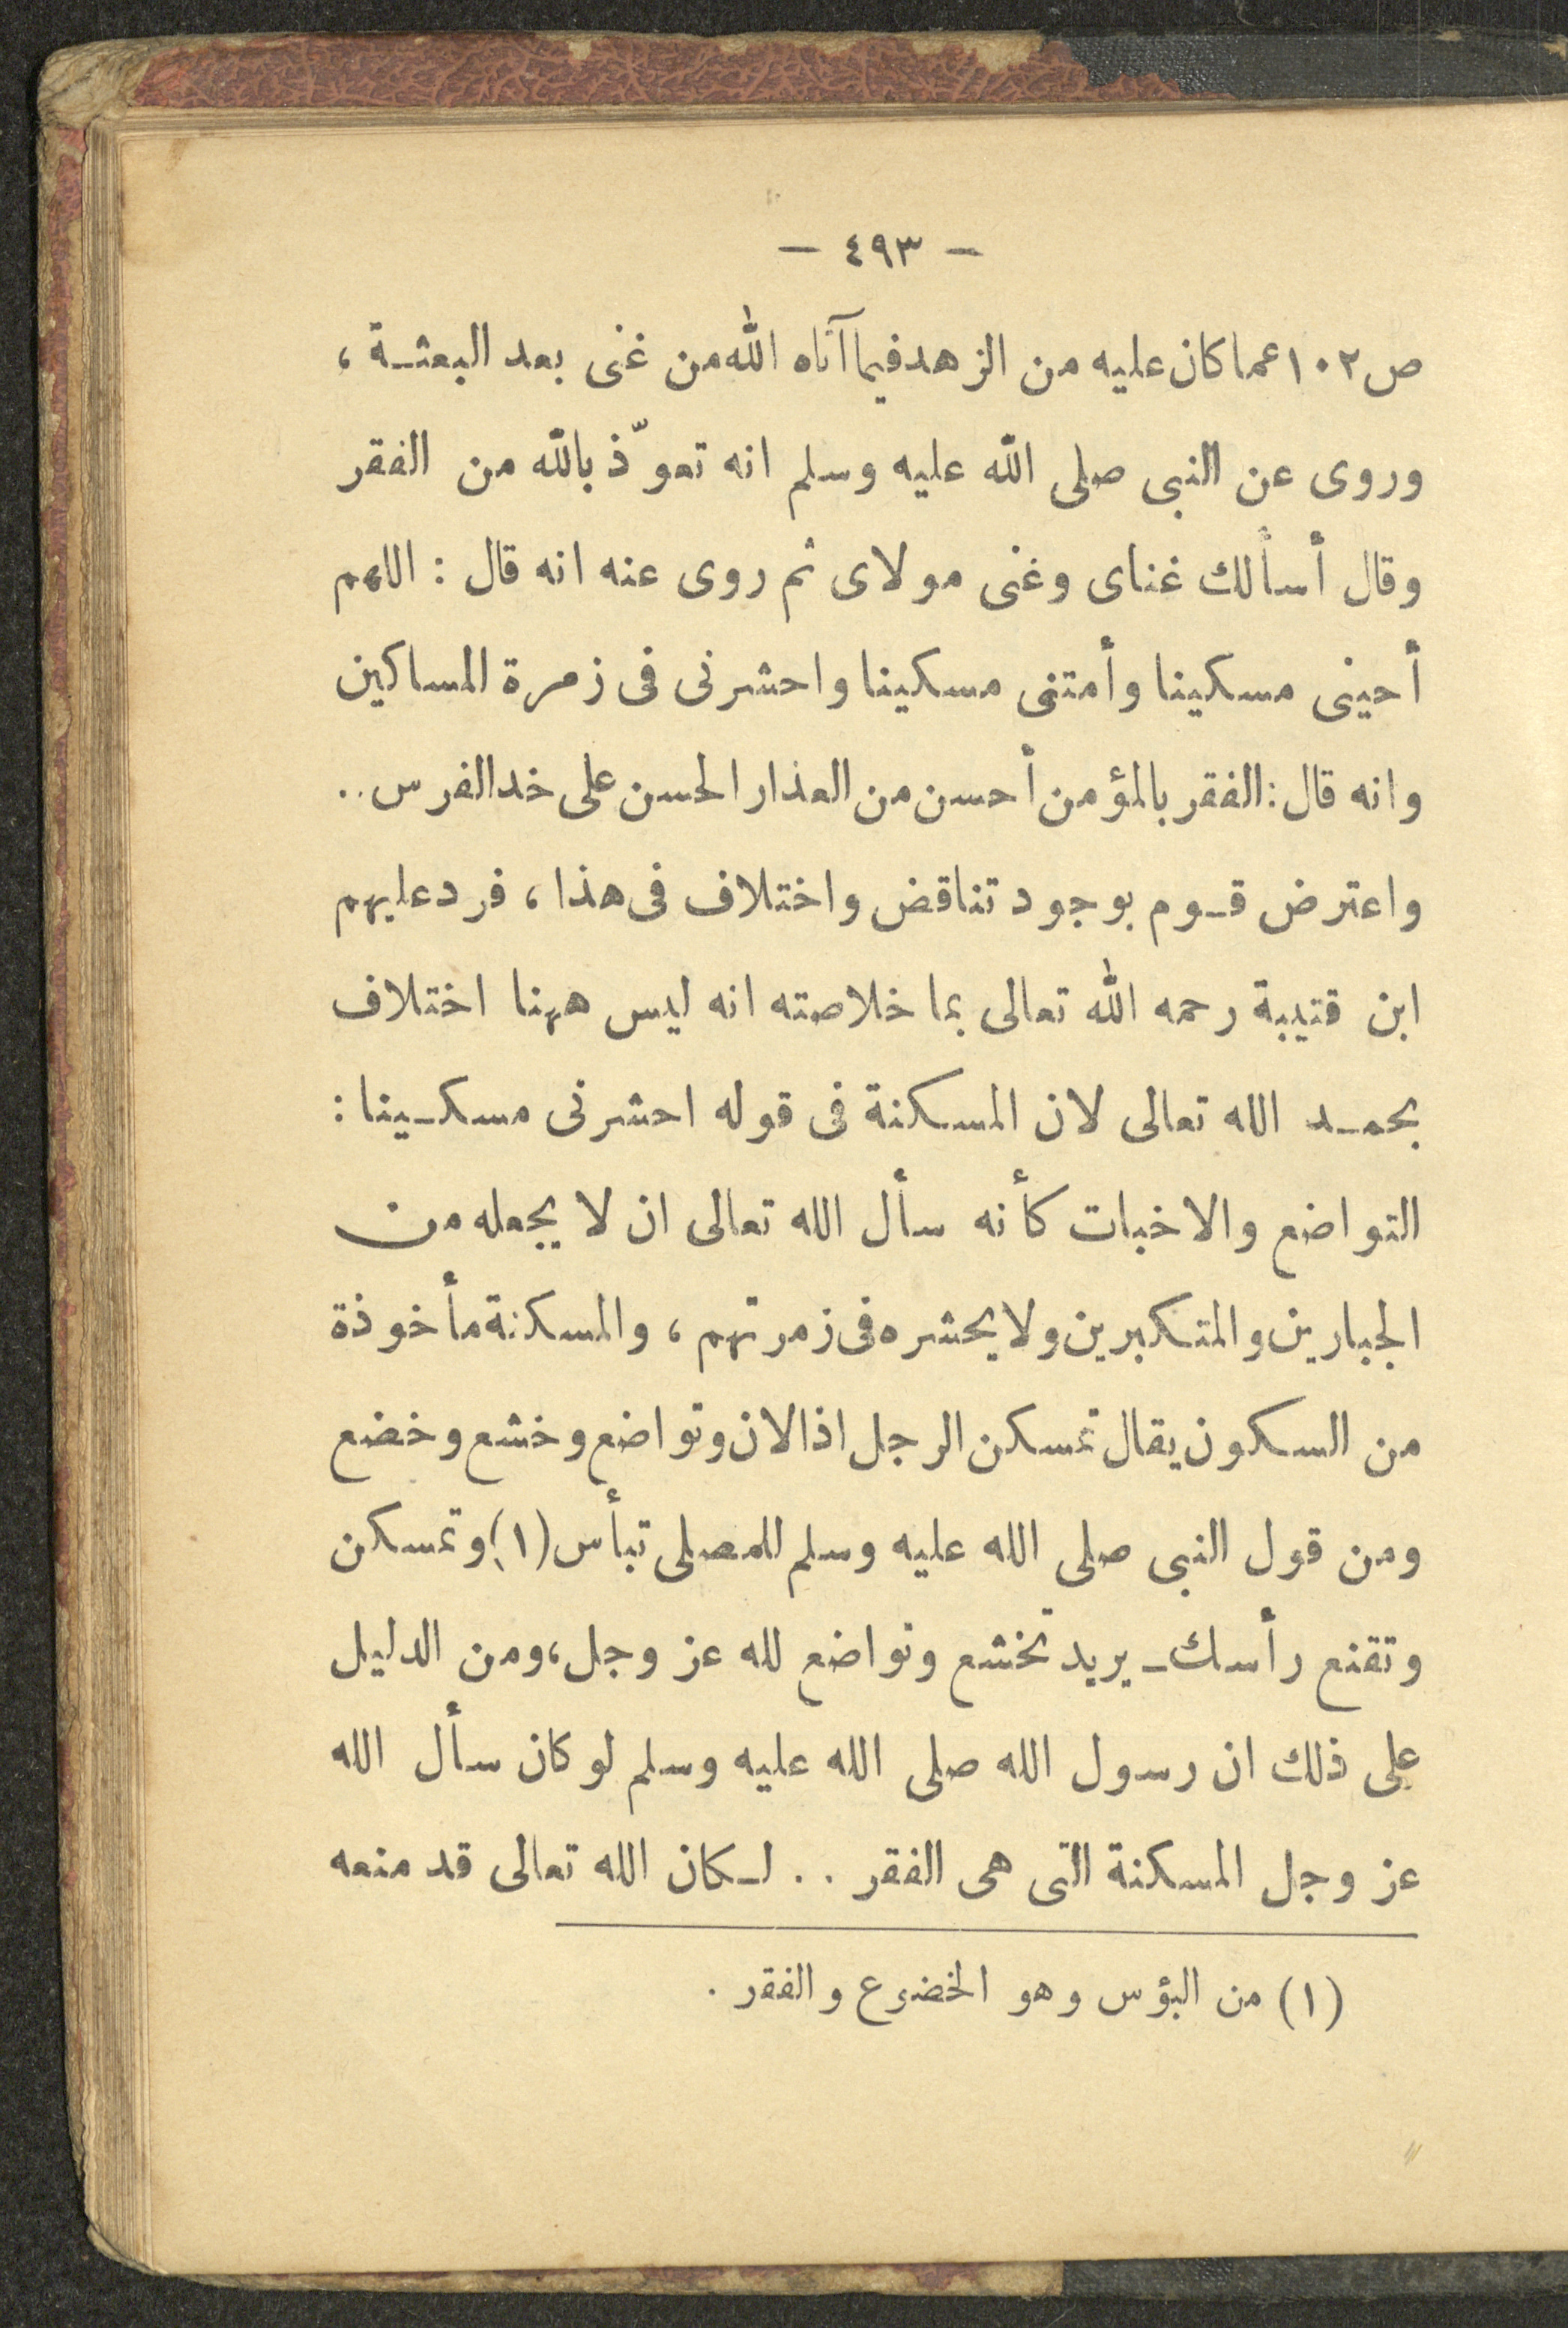 — ٤٩٣ —
ص ١٠٢ عما كان عليه من الزهد فيما آتاه الله من غنى بعد البعثة ،
وروى عن النبى صلى الله عليه وسلم انه تعوّذ بالله من الفقر
وقال أسألك غناى وغنى مولاى ثم روى عنه انه قال : اللهم
أحينى مسكينا وأمتنى مسكينا واحشرنى فى زمرة المساكين
وانه قال : الفقر بالمؤمن أحسن من العذار الحسن على خد الفرس ..
واعترض قوم بوجود تناقض واختلاف فى هذا ، فرد عليهم
ابن قتيبة رحمه الله تعالى بما خلاصته انه ليس ههنا اختلاف
بحمد الله تعالى لان المسكنة فى قوله احشرنى مسكينا :
التواضع والاخبات كأنه سأل الله تعالى ان لا يجعله من
الجبارين والمتكبرين ولا يحشره فى زمرتهم ، والمسكنة مأخوذة
من السكون يقال تمسكن الرجل اذا لان وتواضع وخشع وخضع
ومن قول النبى صلى الله عليه وسلم للمصلى تبأس (١) وتمسكن
وتقنع رأسك ـ يريد تخشع وتواضع لله عز وجل ، ومن الدليل
على ذلك ان رسول الله صلى الله عليه وسلم لو كان سأل الله
عز وجل المسكنة التى هى الفقر . . لكان الله تعالى قد منعه
(١) من البؤس وهو الخضوع والفقر .